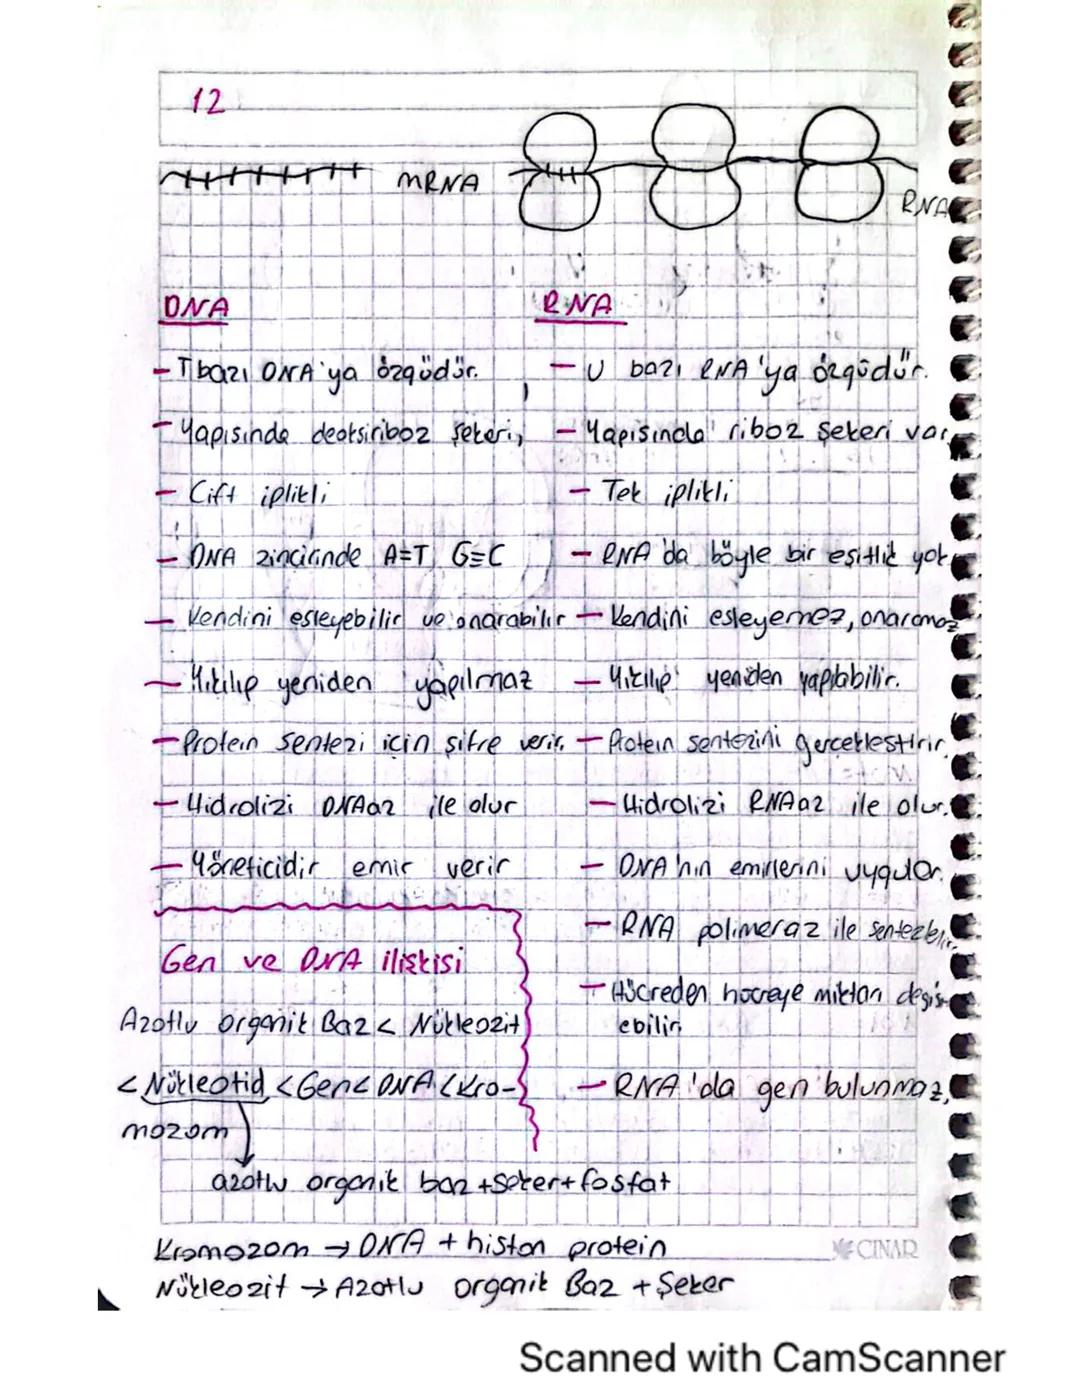 12
mRNA
RNA
DNA
RNA
- T bazı DNA'ya özgüdür.
- U bazı RNA'ya özgüdür.
- Yapısında deoksiriboz şekeri,
- Yapısında riboz şekeri var,
- Çift iplikli
- Tek iplikli
- DNA zincirinde A=T G≡C
- RNA'da böyle bir eşitlik yok,
- Kendini eşleyebilir ve onarabilir
- Kendini eşleyemez, onaramaz
- Yıkılıp yeniden yapılmaz
- Yıkılıp yeniden yapılabilir.
- Protein sentezi için şifre verir.
- Protein sentezini gerçekleştirir.
- Hidrolizi DNAaz ile olur
- Hidrolizi RNAaz ile olur.
- Yöneticidir emir verir
- DNA'nın emirlerini uygular.
- RNA polimeraz ile sentezlenir.
- Hücreden hücreye miktarı değiş-
ebilir.
- RNA'da gen bulunmaz,
Gen ve DNA ilişkisi
Azotlu organik Baz < Nükleozit
< Nükleotid < Gen < DNA < Kro-
mozom
azotlu organik baz + şeker + fosfat
Kromozom → DNA + histon protein
Nükleozit → Azotlu organik Baz + Şeker
ÇINAR
Scanned with CamScanner